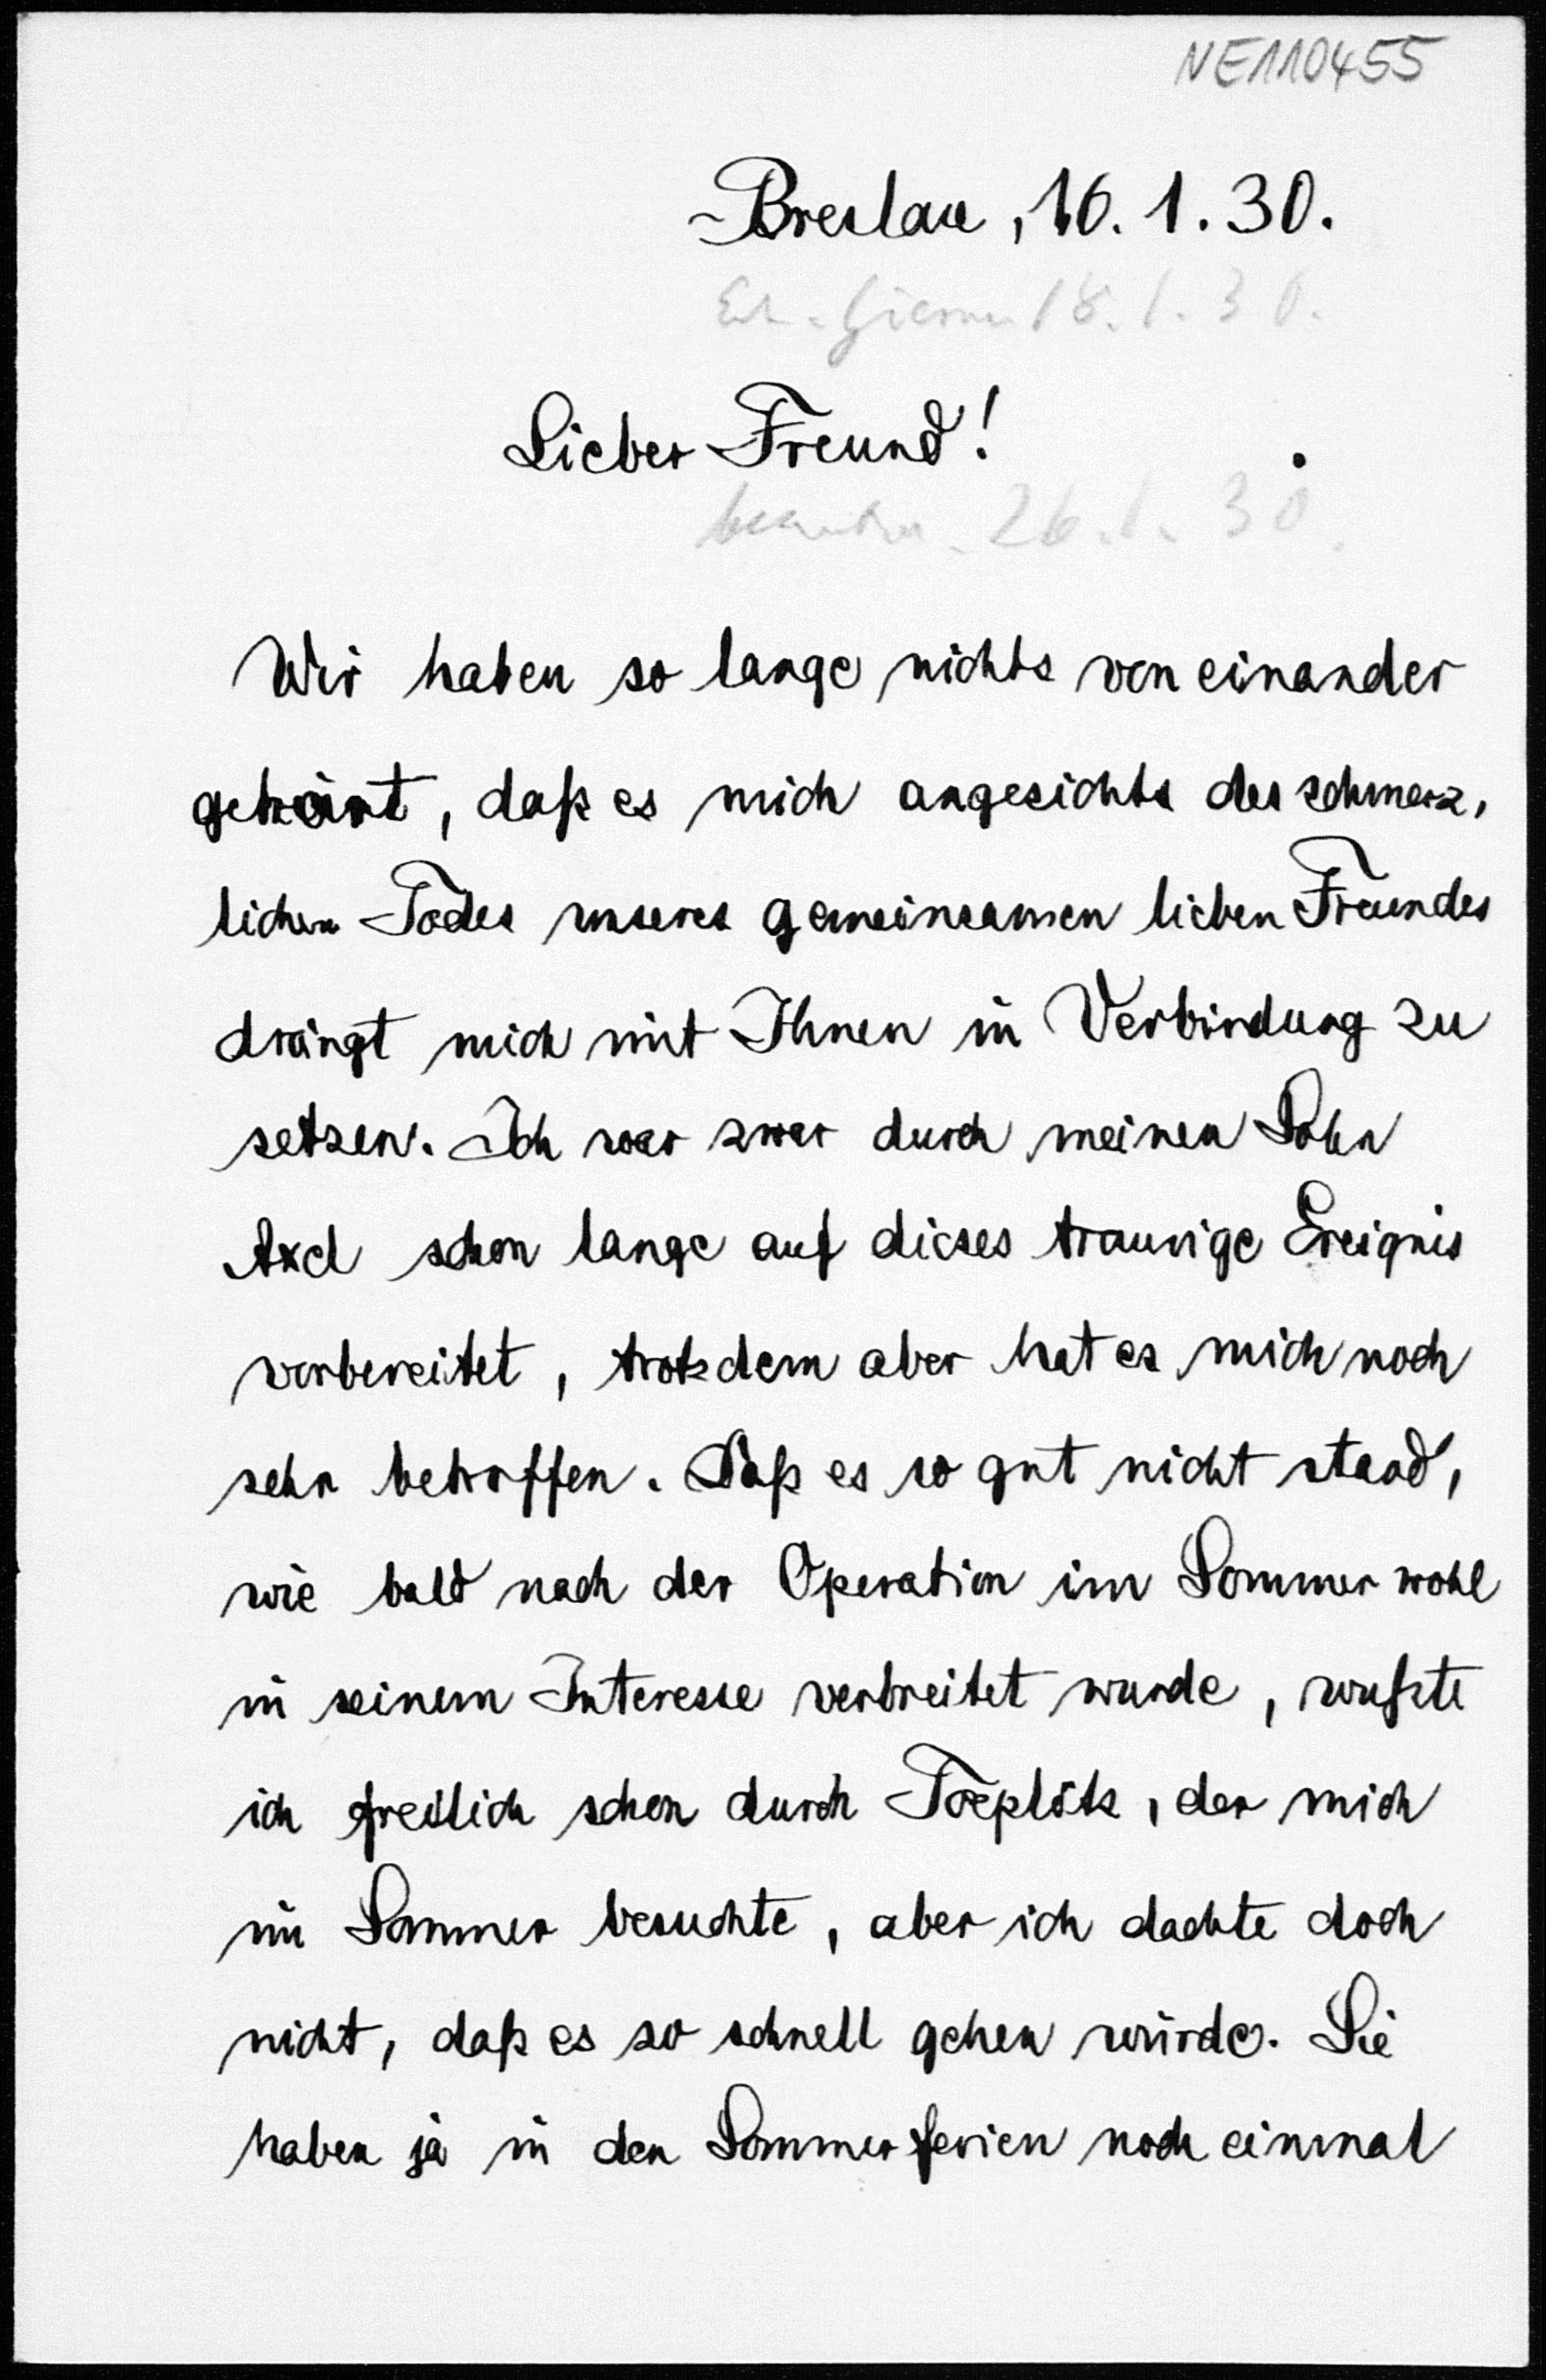 NE110455
Breslau, 16. 1. 30.
18. 1. 30.
Lieber Freund!
26. 1. 30.
Wir haben so lange nichts von einander
gehört, daß es mich angesichts des schmerz-
lichen Todes unseres gemeinsamen lieben Freundes
drängt mich mit Ihnen in Verbindung zu
setzen. Ich war zwar durch meinen Sohn
Axel schon lange auf dieses traurige Ereignis
vorbereitet, trotzdem aber hat es mich noch
sehr betroffen. Daß es so gut nicht stand,
wie bald nach der Operation im Sommer wohl
in seinem Interesse verbreitet wurde, wußte
ich freilich schon durch Toeplitz, der mich
im Sommer besuchte, aber ich dachte doch
nicht, daß es so schnell gehen würde. Sie
haben ja in den Sommerferien noch einmal